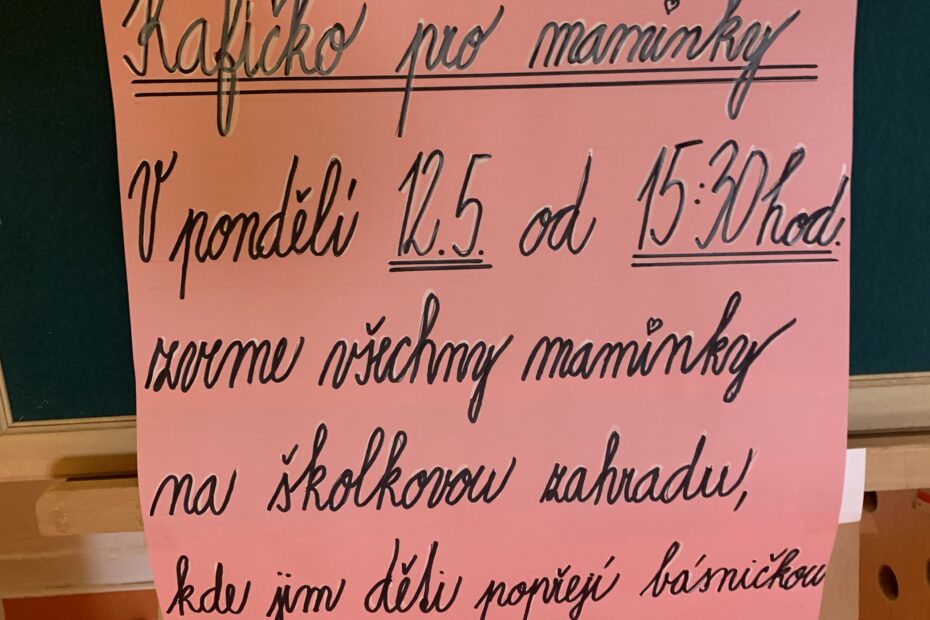 Kafíčko pro maminky
V pondělí 12.5. od 15:30 hod.
zveme všechny maminky
na školkovou zahradu,
kde jim děti popřejí básničkou